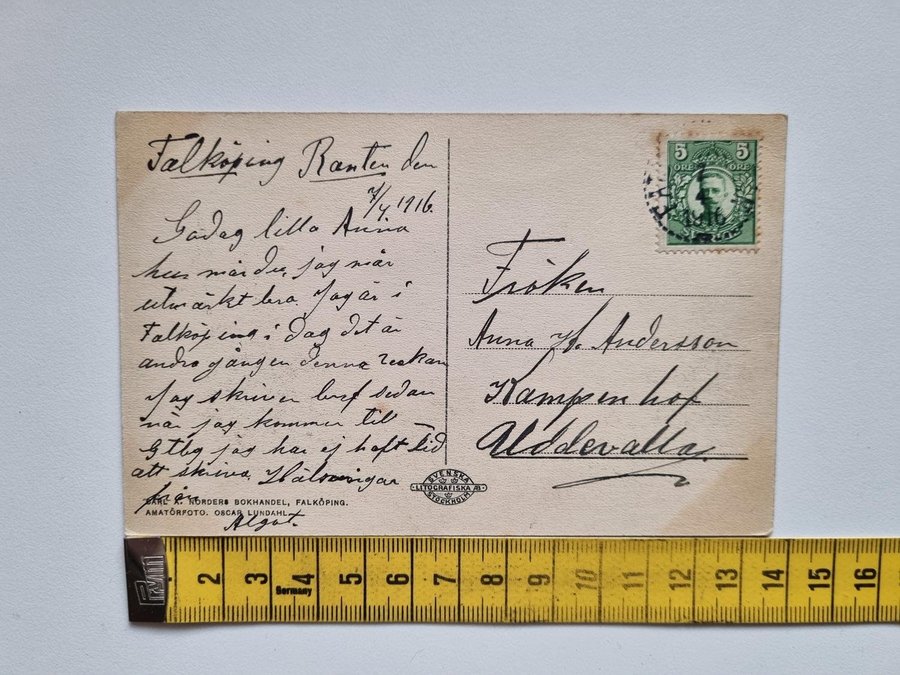 Falköping Ranten den
7/4 1916.
Godag lilla Anna
hur mår du, jag mår
utmärkt bra. Jag är i
Falköping i dag det är
andra gången denna veckan
Jag skriver bref sedan
när jag kommer till
Gtbg jag har ej haft tid
att skriva. Hälsningar
från
Algot.
CARL A. NORDERS BOKHANDEL, FALKÖPING.
AMATÖRFOTO. OSCAR LUNDAHL.
SVENSKA
LITOGRAFISKA AB.
STOCKHOLM
5 5
ÖRE ÖRE
1916
Fröken
Anna Andersson
Kampenhof
Uddevalla.
2 3 4 5 6 7 8 9 10 11 12 13 14 15 16
Germany